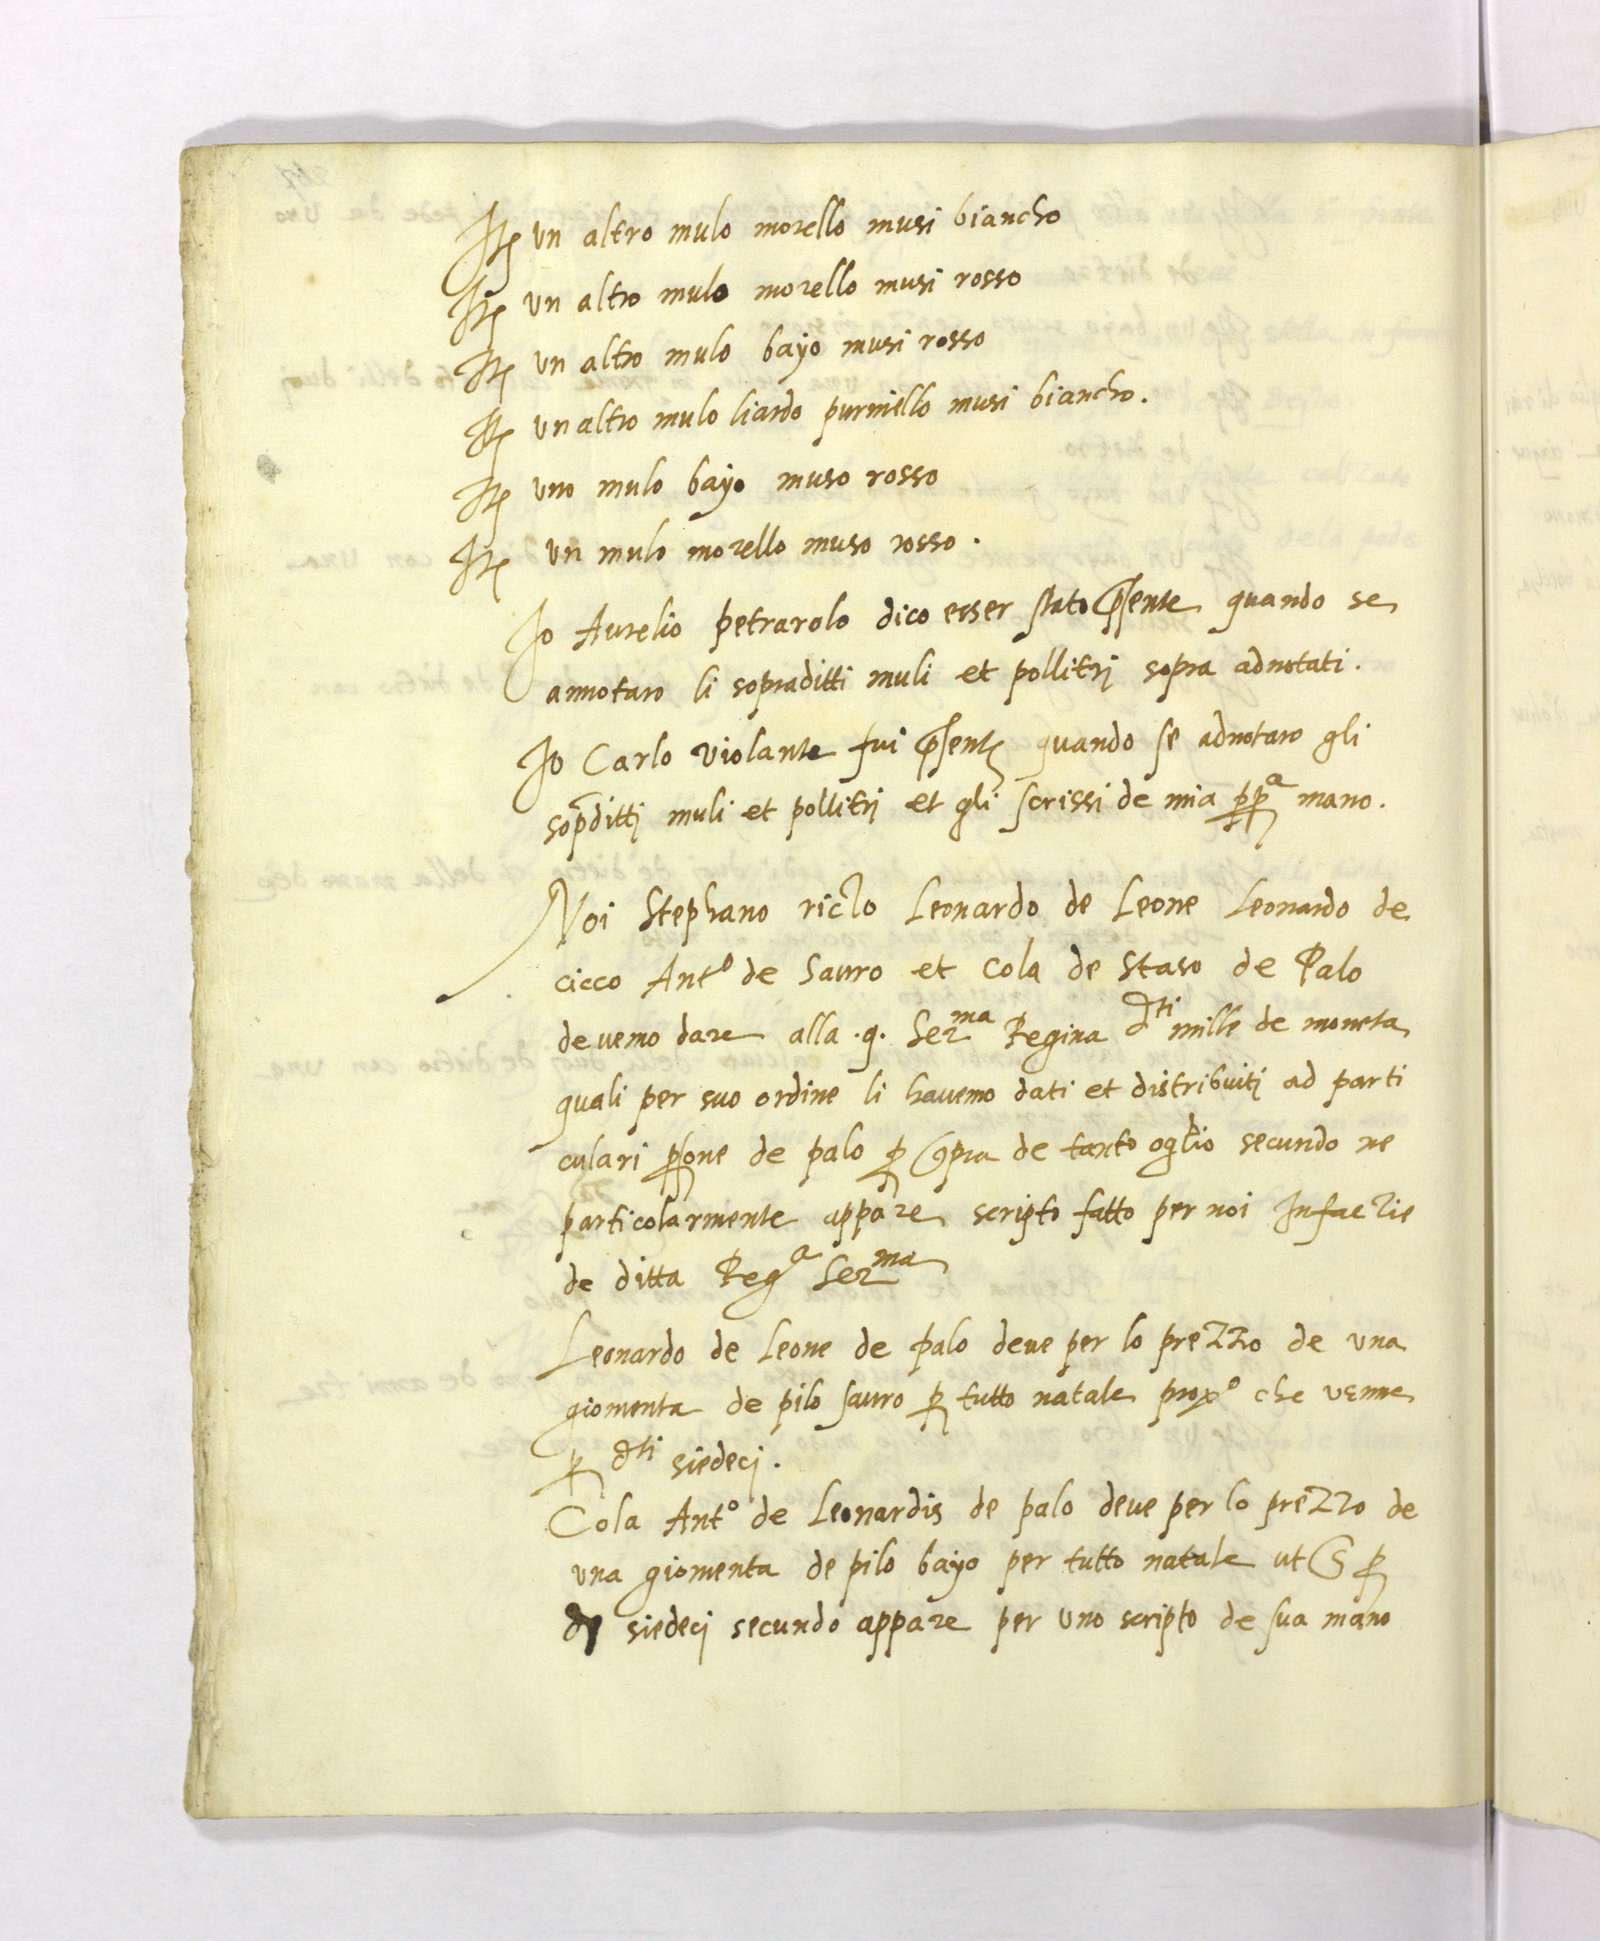 It(em) un altro mulo morello musi biancho
It(em) un altro mulo morello musi rosso
It(em) un altro mulo bayo musi rosso
It(em) un altro mulo liardo purniello musi biancho.
It(em) uno mulo bayo muso rosso
It(em) un mulo morello muso rosso.
Io Aurelio petrarolo dico esser stato p̄sente quando se
annotaro li sopraditti muli et pollitrj sopra adnotati.
Io Carlo violante fui p̄sente quando se adnotaro gli
sop̄dittj muli et pollitrj et gli scrissi de mia ꝓpᵃ mano.
Noi Stephano riccˡo Leonardo de Leone Leonardo de
cicco Antº de Sauro et Cola de Staso de Palo
devemo dare alla .q. Serᵐᵃ Regina dᵗⁱ mille de moneta
quali per suo ordine li havemo dati et distribuitj ad parti
culari ꝑsone de palo ꝑ ꝯpra de tanto oglio secundo ne
particolarmente appare scripto fatto per noi In factie
de ditta Regᵃ Serᵐᵃ
Leonardo de Leone de palo deve per lo prezzo de una
giomenta de pilo sauro ꝑ tutto natale proxº che venne
ꝑ dᵗⁱ siedecj.
Cola Antº de Leonardis de palo deve per lo prezzo de
una giomenta de pilo bayo per tutto natale ut s̄ ꝑ
siedecj secundo appare per uno scripto de sua mano